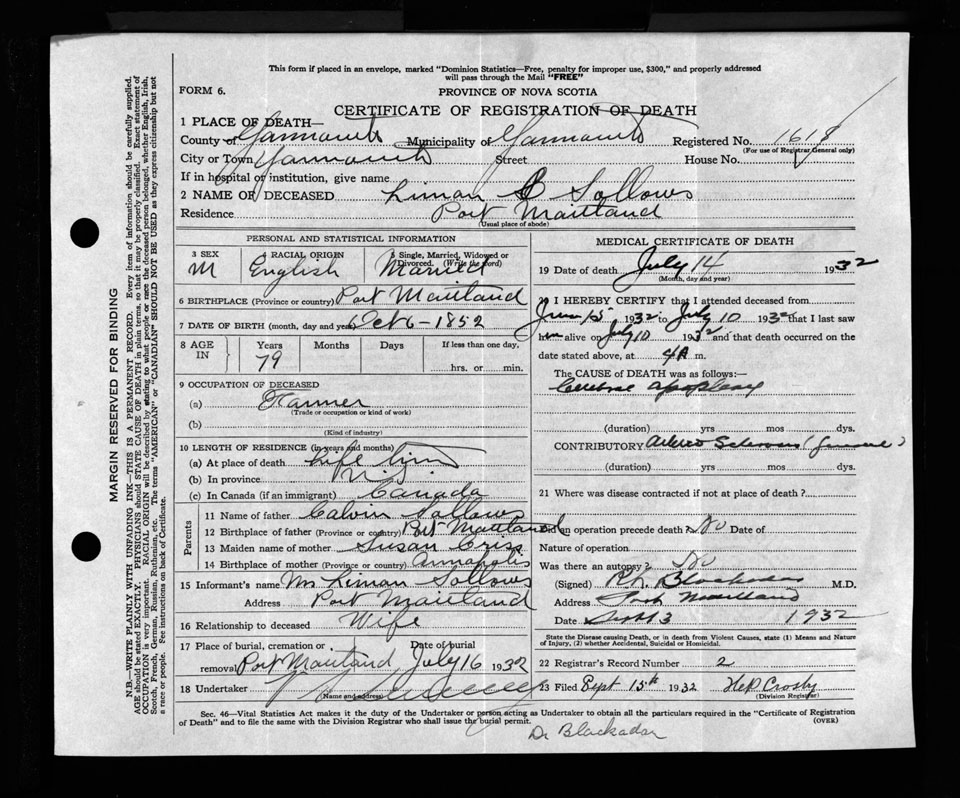 This form if placed in an envelope, marked "Dominion Statistics—Free, penalty for improper use, $300," and properly addressed
will pass through the Mail "FREE"
FORM 6. PROVINCE OF NOVA SCOTIA
CERTIFICATE OF REGISTRATION OF DEATH
1 PLACE OF DEATH—
County of Yarmouth Municipality of Yarmouth Registered No. 1618
(For use of Registrar General only)
City or Town Yarmouth Street House No.
If in hospital or institution, give name
2 NAME OF DECEASED Liman S Sollows
Residence Port Maitland
(Usual place of abode)
PERSONAL AND STATISTICAL INFORMATION
3 SEX 4 RACIAL ORIGIN 5 Single, Married, Widowed or Divorced. (Write the word)
M English Married
6 BIRTHPLACE (Province or country) Port Maitland
7 DATE OF BIRTH (month, day and year) Oct 6-1852
8 AGE IN Years Months Days If less than one day,
79 hrs. or min.
9 OCCUPATION OF DECEASED
(a) Farmer
(Trade or occupation or kind of work)
(b)
(Kind of industry)
10 LENGTH OF RESIDENCE (in years and months)
(a) At place of death life time
(b) In province
(c) In Canada (if an immigrant) Canada
Parents
11 Name of father Calvin Sollows
12 Birthplace of father (Province or country) Port Maitland
13 Maiden name of mother Susan Cris
14 Birthplace of mother (Province or country) Annapolis
15 Informant's name Mrs Liman Sollows
Address Port Maitland
16 Relationship to deceased Wife
17 Place of burial, cremation or removal Date of burial
Port Maitland July 16 1932
18 Undertaker
(Name and address)
MEDICAL CERTIFICATE OF DEATH
19 Date of death July 14 1932
(Month, day and year)
20 I HEREBY CERTIFY that I attended deceased from
June 15, 1932 to July 10 1932 that I last saw
him alive on July 10 1932 and that death occurred on the
date stated above, at 4 A m.
The CAUSE of DEATH was as follows:—
Cerebral apoplexy
(duration) yrs mos dys
CONTRIBUTORY Arterio Sclerosis (general)
(duration) yrs mos dys
21 Where was disease contracted if not at place of death?
Did an operation precede death? No Date of
Nature of operation
Was there an autopsy? No
(Signed) Blackadar M.D.
Address Port Maitland
Date Sept 13 1932
State the Disease causing Death, or in death from Violent Causes, state (1) Means and Nature
of Injury, (2) whether Accidental, Suicidal or Homicidal.
22 Registrar's Record Number 2
23 Filed Sept 15th 1932 H.P. Crosby
(Division Registrar)
Sec. 46—Vital Statistics Act makes it the duty of the Undertaker or person acting as Undertaker to obtain all the particulars required in the "Certificate of Registration
of Death" and to file the same with the Division Registrar who shall issue the burial permit. (OVER)
Dr Blackadar
MARGIN RESERVED FOR BINDING
N.B.—WRITE PLAINLY WITH UNFADING INK—THIS IS A PERMANENT RECORD. Every item of information should be carefully supplied.
AGE should be stated EXACTLY. PHYSICIANS should STATE CAUSE OF DEATH in plain terms, so that it may be properly classified. Exact statement of
OCCUPATION is very important. RACIAL ORIGIN will be described by stating to what people or race the deceased person belonged, whether English, Irish,
Scotch, French, German, Russian, Ruthenian, etc. The terms "AMERICAN" or "CANADIAN" SHOULD NOT BE USED as they express citizenship but not
a race or people. See instructions on back of Certificate.